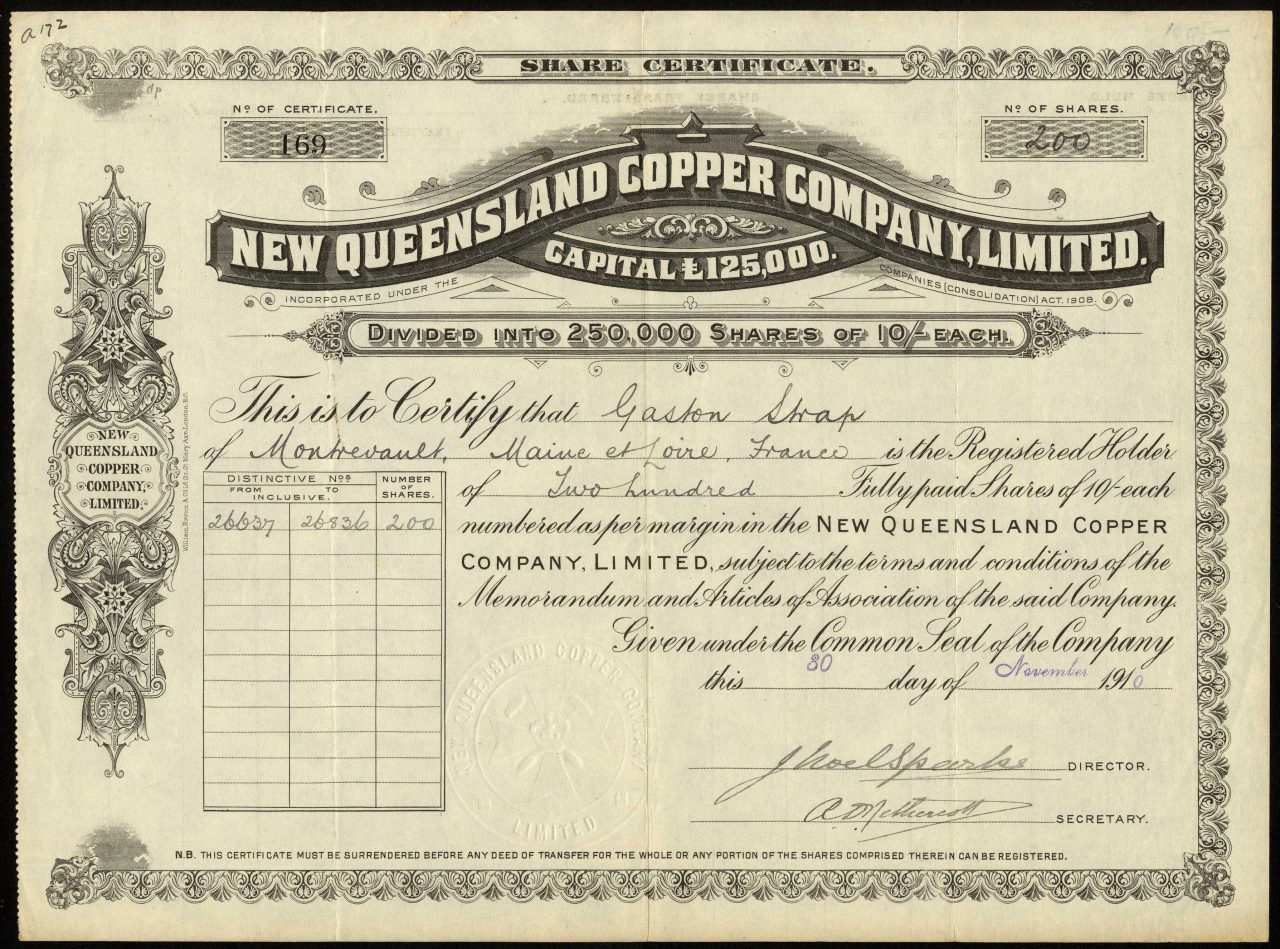 a 172
SHARE CERTIFICATE.
Nº OF CERTIFICATE.
169
Nº OF SHARES.
200
NEW QUEENSLAND COPPER COMPANY, LIMITED.
CAPITAL £125,000.
INCORPORATED UNDER THE COMPANIES (CONSOLIDATION) ACT. 1908.
DIVIDED INTO 250,000 SHARES OF 10/- EACH.
This is to Certify that Gaston Strap
of Montrevault, Maine et Loire, France is the Registered Holder
of Two hundred Fully paid Shares of 10/- each
numbered as per margin in the NEW QUEENSLAND COPPER
COMPANY, LIMITED, subject to the terms and conditions of the
Memorandum and Articles of Association of the said Company.
Given under the Common Seal of the Company
this 30 day of November 1910
DISTINCTIVE NºS
FROM TO
INCLUSIVE.
NUMBER
OF
SHARES.
26637 26836 200
NEW
QUEENSLAND
COPPER
COMPANY,
LIMITED.
NEW QUEENSLAND COPPER COMPANY
LIMITED
J Noel Sparks DIRECTOR.
SECRETARY.
N.B. THIS CERTIFICATE MUST BE SURRENDERED BEFORE ANY DEED OF TRANSFER FOR THE WHOLE OR ANY PORTION OF THE SHARES COMPRISED THEREIN CAN BE REGISTERED.